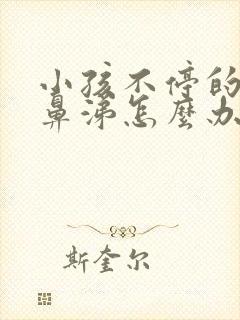 小孩不停的
鼻涕怎麼办
斯奎尔